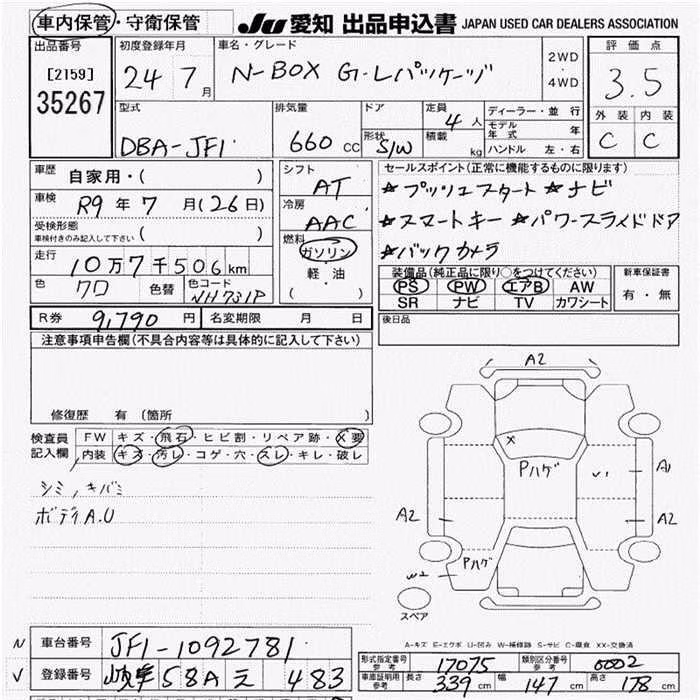 車内保管・守衛保管
JU 愛知 出品申込書 JAPAN USED CAR DEALERS ASSOCIATION
出品番号
[2159]
35267
初度登録年月
24 7月
車名・グレード
N-BOX G・Lパッケージ
2WD
・
4WD
評価点
3.5
外装 内装
C C
型式
DBA-JF1
排気量
660 cc
ドア
形状 S/W
定員 4人
積載 kg
ディーラー・並行
モデル年式 年
ハンドル 左・右
車歴 自家用・( )
車検 R9年7月(26日)
受検形態
車検付きのみ記入して下さい ( )
走行 10万7千506km
色 クロ 色替 色コード NH731P
シフト AT
冷房 AAC
燃料 ガソリン
軽・油
( )
セールスポイント(正常に機能するものに限ります)
★プッシュスタート ★ナビ
★スマートキー ★パワースライドドア
★バックカメラ
装備品(純正品に限り○をつけてください)
PS PW エアB AW
SR ナビ TV カワシート
新車保証書
有・無
R券 9,790円 名変期限 月 日
後日品
注意事項申告欄(不具合内容等は具体的に記入して下さい)
修復歴 有(箇所 )
検査員記入欄
FW キズ・飛石・ヒビ割・リペア跡・X要
内装 キズ・汚レ・コゲ・穴・スレ・キレ・破レ
シミ,キバミ
ボデイA.U
A2
X
Pハゲ
V1
A1
A2
A2
Pハゲ
W2
スペア
A2
A-キズ E-エクボ U-凹み W-補修跡 S-サビ C-腐食 XX-交換済
N 車台番号 JF1-1092781
V 登録番号 岐阜 58A え 483
形式指定番号 参考 17075 類別区分番号 参考 0002
車庫証明用 参考 長さ 339cm 幅 147cm 高さ 178cm